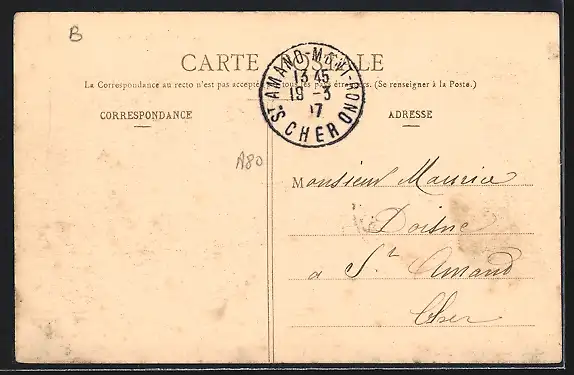 B
CARTE POSTALE
La Correspondance au recto n'est pas acceptée par tous les pays étrangers. (Se renseigner à la Poste.)
CORRESPONDANCE
ADRESSE
ST AMAND-MONT-ROND
13 45
19-3
07
CHER
A80
Monsieur Maurice
Doisne
a St Amand
Cher